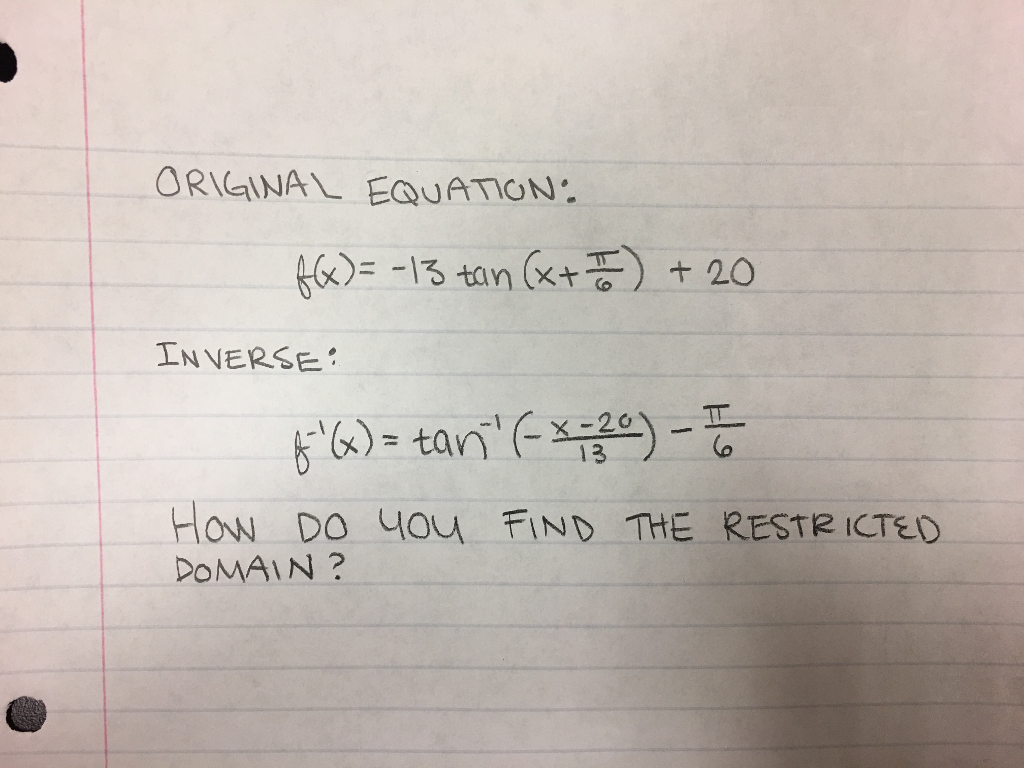 ORIGINAL EQUATION:
f(x) = -13 tan (x + π/6) + 20
INVERSE:
f⁻¹(x) = tan⁻¹ (- x-20/13) - π/6
HOW DO YOU FIND THE RESTRICTED
DOMAIN?